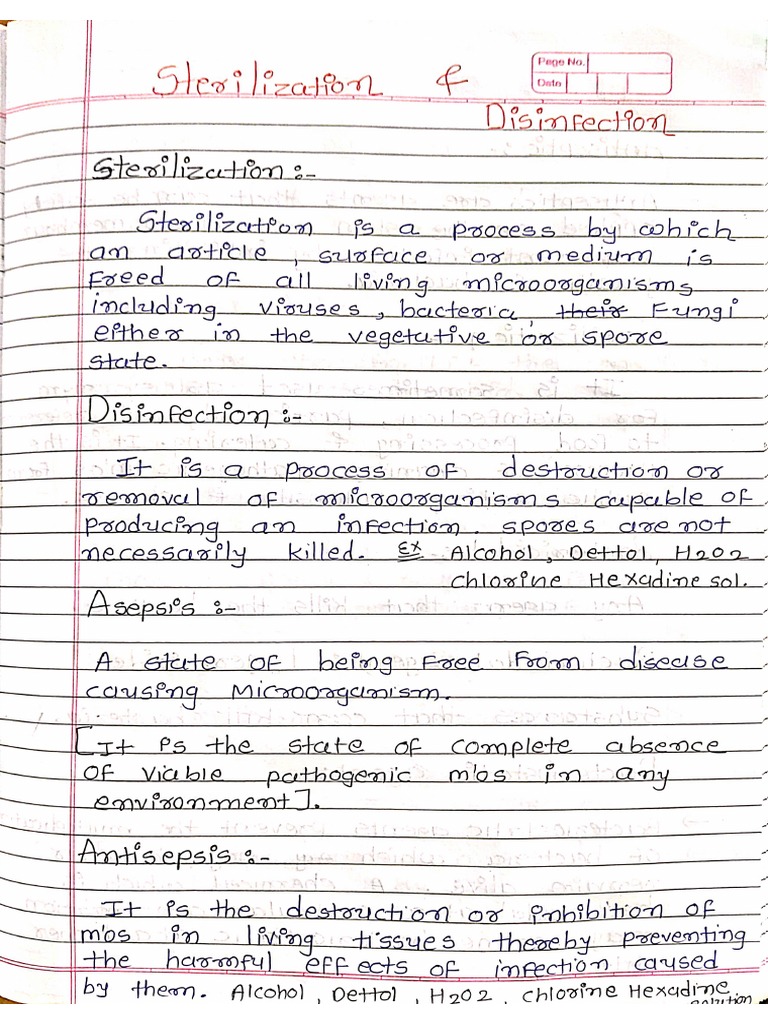 Sterilization &
Page No.
Date
Disinfection
Sterilization :-
Sterilization is a process by which
an article, surface or medium is
Freed of all living microorganisms
including viruses, bacteria, their Fungi
either in the vegetative or spore
state.
Disinfection :-
It is a process of destruction or
removal of microorganisms capable of
producing an infection, spores are not
necessarily killed. Ex Alcohol, Dettol, H2O2
chlorine Hexadine sol.
Asepsis :-
A state of being Free From disease
causing Microorganism.
[It is the state of complete absence
of viable pathogenic m'os in any
environment].
Antisepsis :-
It is the destruction or inhibition of
m'os in living tissues thereby preventing
the harmful effects of infection caused
by them. Alcohol, Dettol, H2O2, chlorine Hexadine
solution